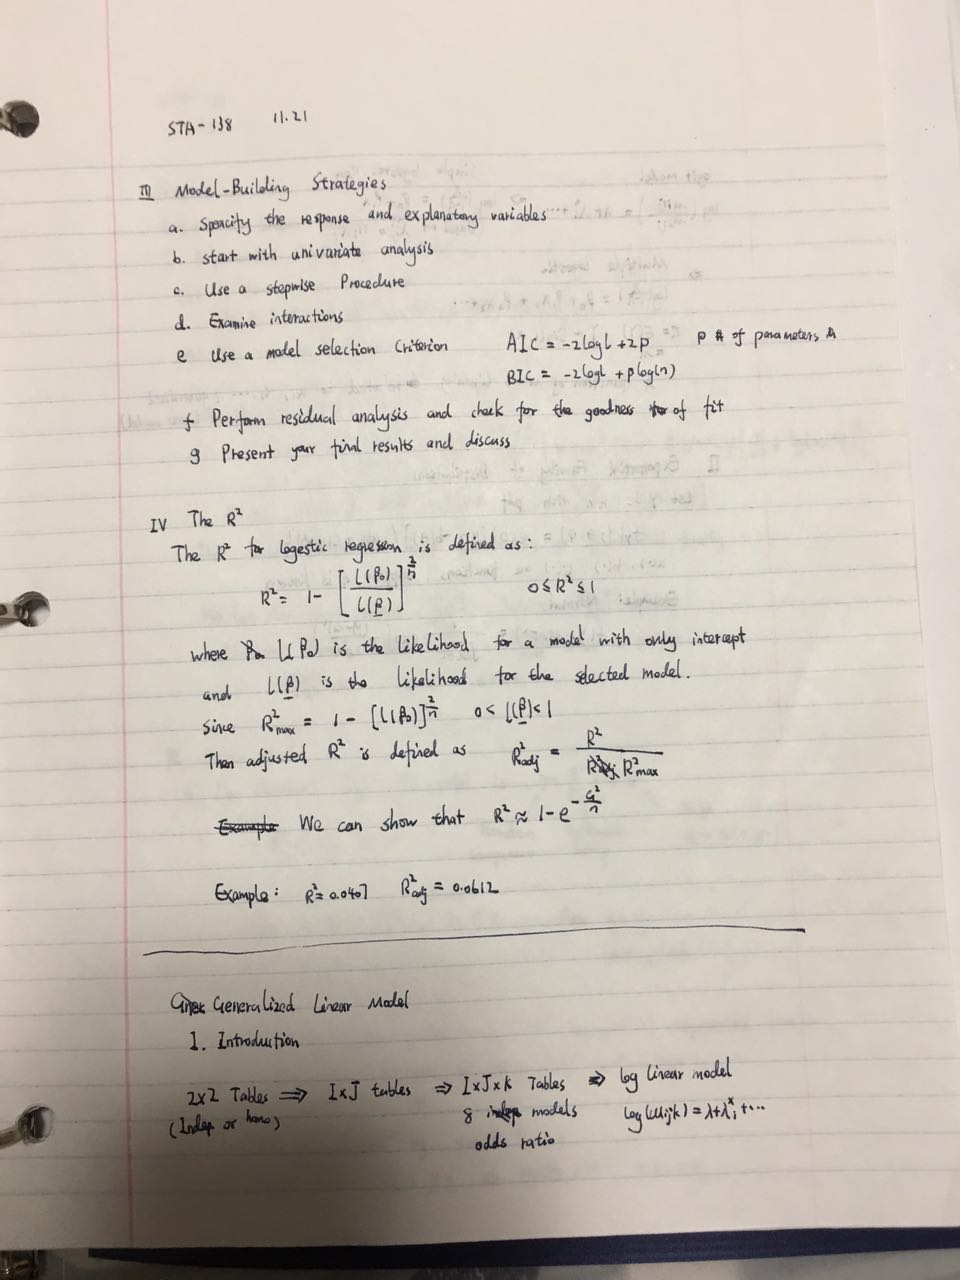 STA-138 11.21
III Model-Building Strategies
a. Speacify the response and explanatory variables
b. start with univariate analysis
c. Use a stepwise Procedure
d. Examine interactions
e Use a model selection Criterion AIC = -2logL + 2p p # of parameters
BIC = -2logL + plog(n)
f Perform residual analysis and check for the goodness of fit
g Present your final results and discuss
IV The R²
The R² for logestic regression is defined as:
R² = 1 - [L(β₀)/L(β)]^(2/n) 0 ≤ R² ≤ 1
where L(β₀) is the likelihood for a model with only intercept
and L(β) is the likelihood for the selected model.
Since R²max = 1 - [L(β₀)]^(2/n) 0 < L(β) < 1
Then adjusted R² is defined as R²adj = R²/R²max
We can show that R² ≈ 1 - e^(-G²/n)
Example: R² = 0.0407 R²adj = 0.0612
Generalized Linear Model
1. Introduction
2x2 Tables ⇒ IxJ tables ⇒ IxJxK Tables ⇒ log linear model
(Indep or homo) 8 models log(μijk) = λ+λᵢˣ+...
odds ratio